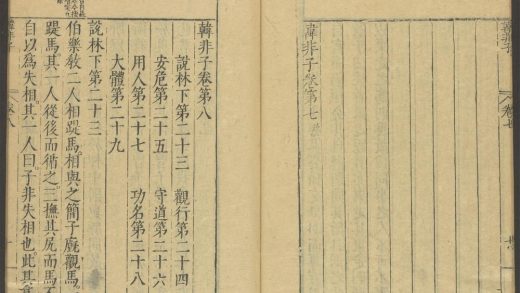 韓非子卷第七
韓非子卷第八
說林下第二十三　觀行第二十四
安危第二十五　守道第二十六
用人第二十七　功名第二十八
大體第二十九
說林下第二十三
伯樂敎二人相踶馬相與之簡子廐觀馬
踶馬其一人從後而循之三撫其尻而馬不
自以爲失相其一人曰子非失相也此其